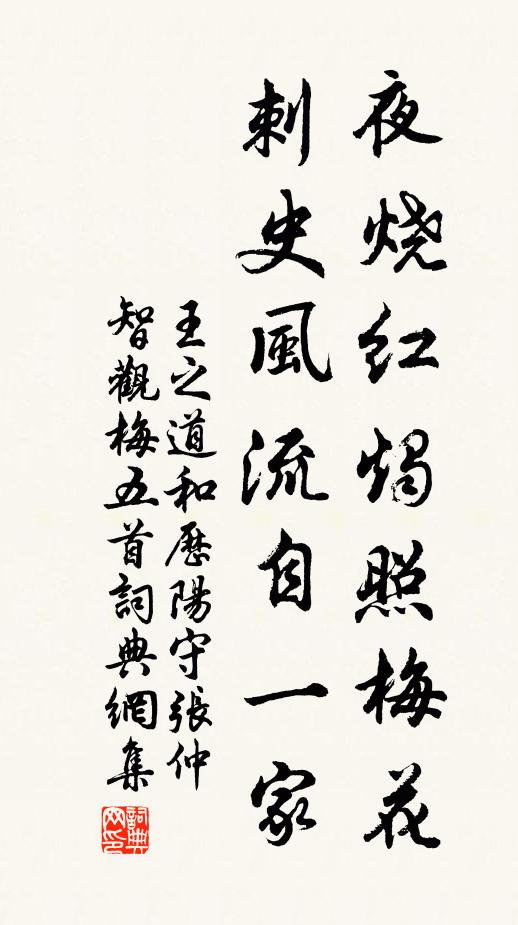 夜烧红烛照梅花
刺史風流自一家
王之道和歷陽守張仲
智觀梅五首詞典網集
詞典网印